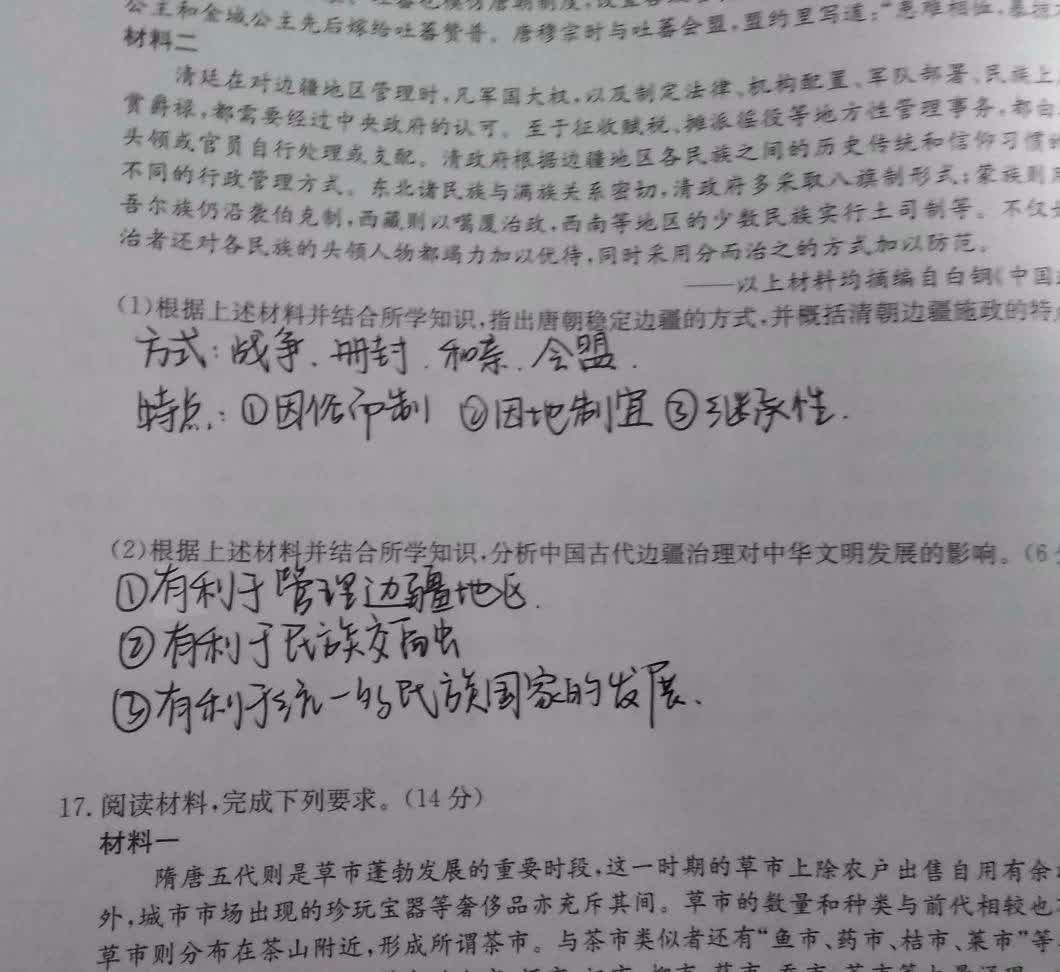 公主和金城公主先后嫁给吐蕃赞普。唐穆宗时与吐蕃会盟,盟约里写道:“患难相恤,暴掠
材料二
清廷在对边疆地区管理时,凡军国大权,以及制定法律、机构配置、军队部署、民族上
赏爵禄,都需要经过中央政府的认可。至于征收赋税、摊派徭役等地方性管理事务,都由
头领或官员自行处理或支配。清政府根据边疆地区各民族之间的历史传统和信仰习惯的
不同的行政管理方式。东北诸民族与满族关系密切,清政府多采取八旗制形式;蒙族则
吾尔族仍沿袭伯克制,西藏则以噶厦治政,西南等地区的少数民族实行土司制等。不仅
治者还对各民族的头领人物都竭力加以优待,同时采用分而治之的方式加以防范。
——以上材料均摘编自白钢《中国
(1)根据上述材料并结合所学知识,指出唐朝稳定边疆的方式,并概括清朝边疆施政的特
方式:战争、册封、和亲、会盟.
特点:①因俗而制 ②因地制宜 ③继承性.
(2)根据上述材料并结合所学知识,分析中国古代边疆治理对中华文明发展的影响。(6
①有利于管理边疆地区.
②有利于民族交融
③有利于统一的民族国家的发展.
17. 阅读材料,完成下列要求。(14 分)
材料一
隋唐五代则是草市蓬勃发展的重要时段,这一时期的草市上除农户出售自用有余
外,城市市场出现的珍玩宝器等奢侈品亦充斥其间。草市的数量和种类与前代相较也
草市则分布在茶山附近,形成所谓茶市。与茶市类似者还有“鱼市、药市、桔市、菜市”等